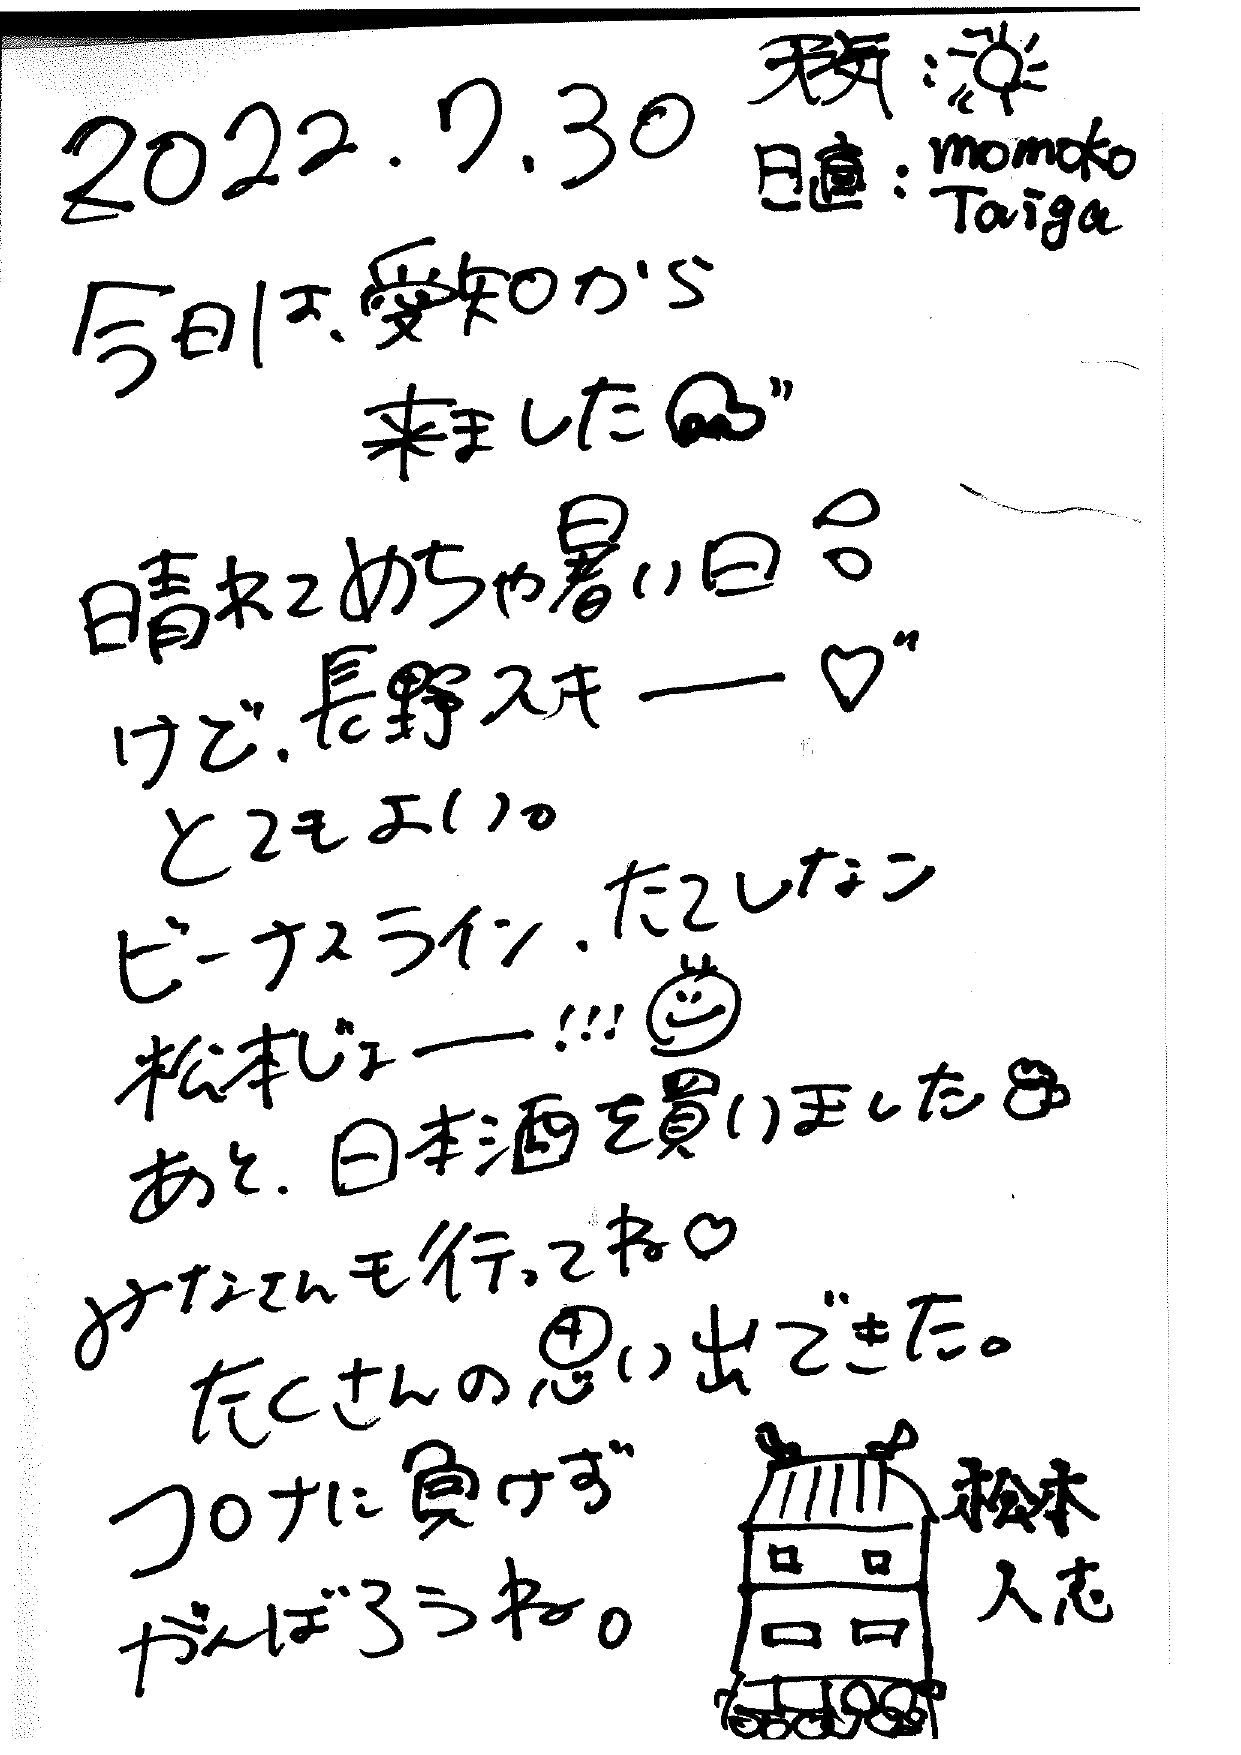 2022.7.30
天気：
日直：momoko
Taiga
今日は、愛知から
来ました
晴れてめちゃ暑い日
けど、長野スキー
とてもよい。
ビーナスライン、たてしなン
松本じょー!!!
あと、日本酒を買いました
みなさんも行ってね♡
たくさんの思い出できた。
コロナに負けず
がんばろうね。
松本
人志